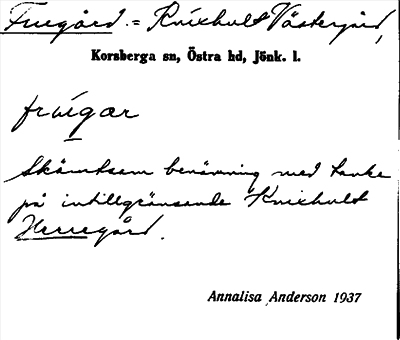 Fruegård. = Knixhult Västergård,
Korsberga sn, Östra hd, Jönk. l.
frúigar
Skämtsam benämning med tanke
på intillgränsande Knixhult
Herregård.
Annalisa Anderson 1937